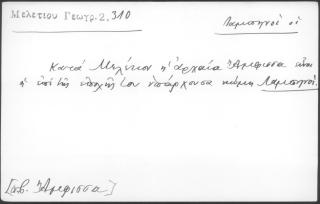 Μελετίου Γεωγρ. 2, 310
Λαμπηνοί οἱ
Κατὰ Μελέτιον ἡ ἀρχαία Ἄμφισσα εἶναι
ἡ ἐπὶ τῆς ἐποχῆς του ὑπάρχουσα κώμη Λαμπηνοί.
[πβ. Ἄμφισσα]